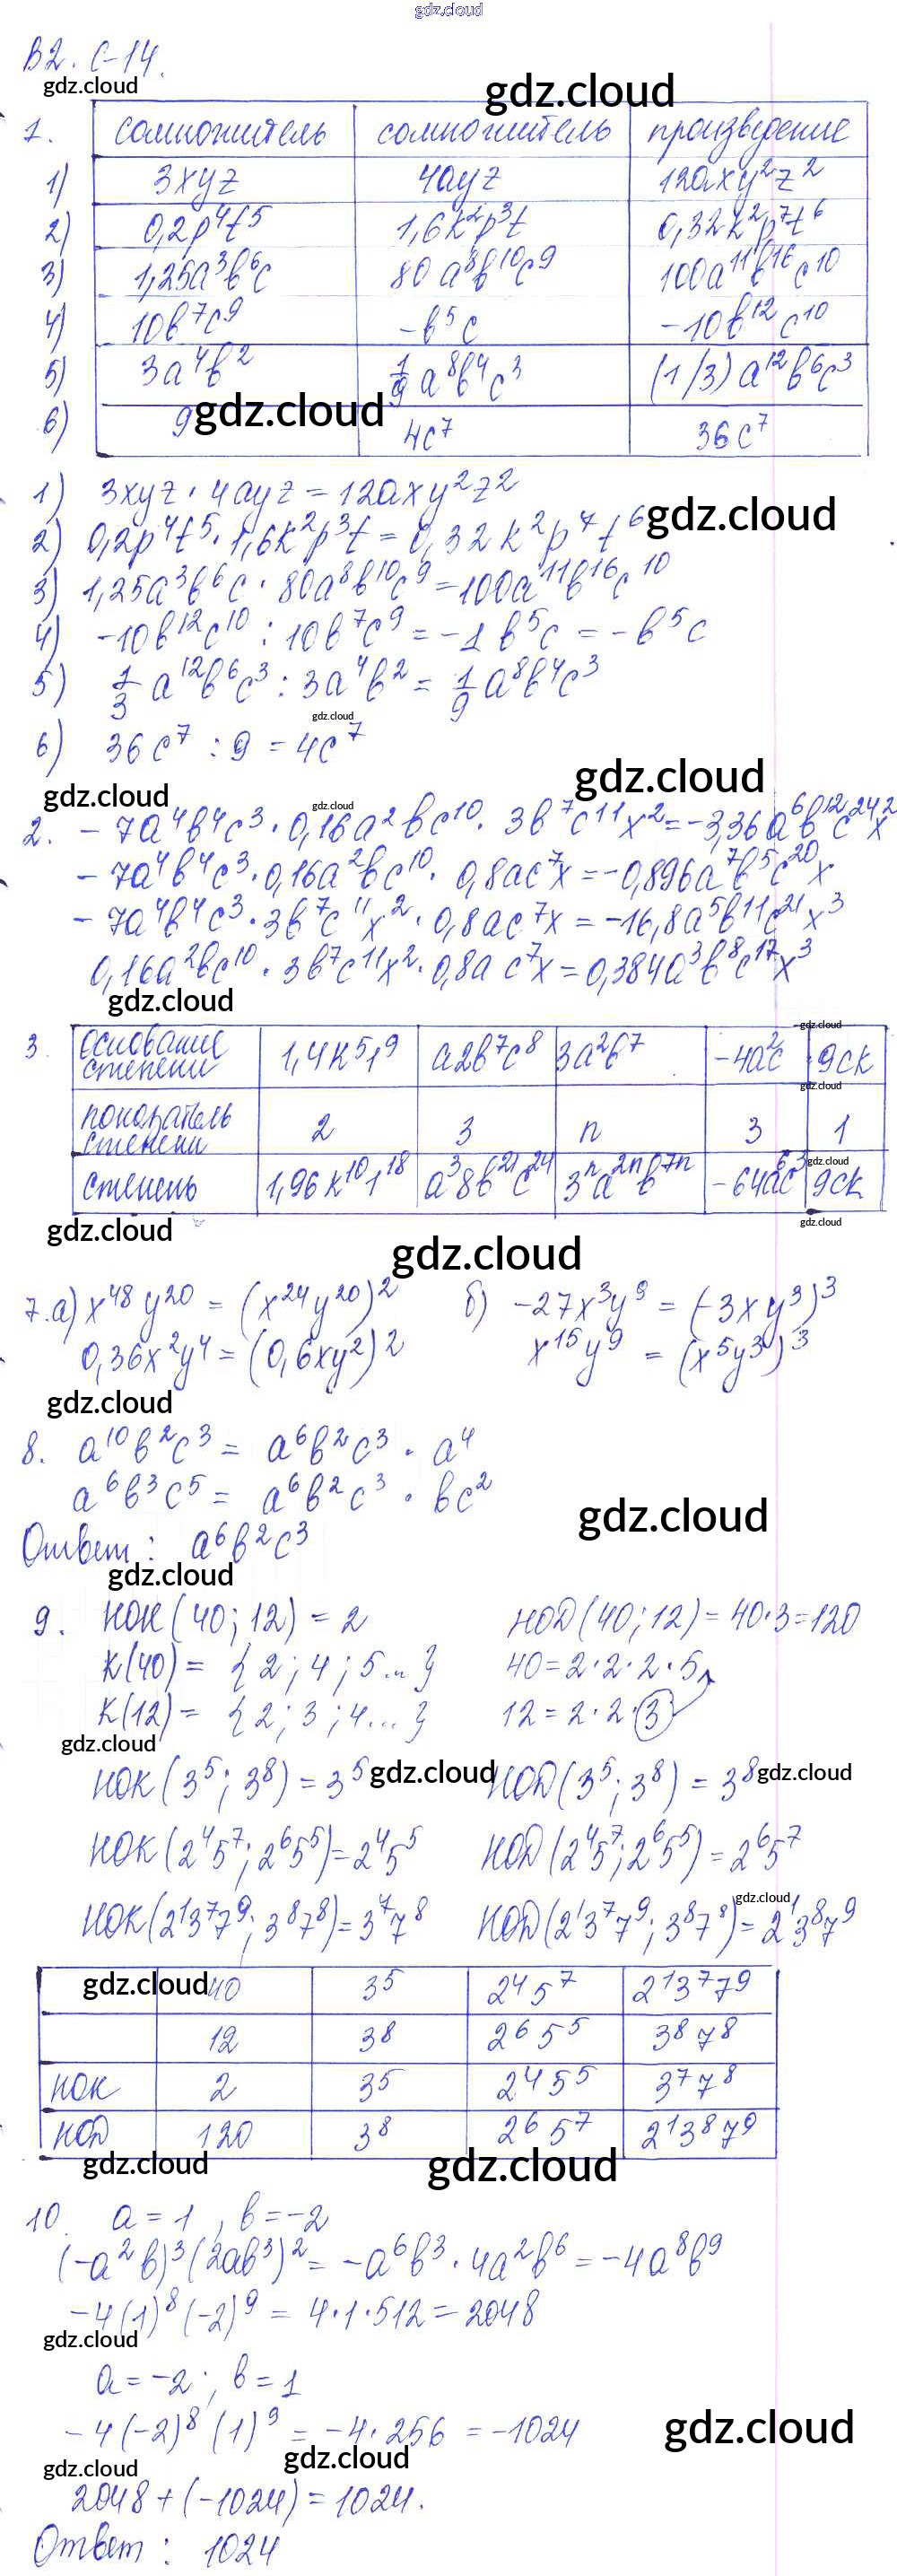 gdz.cloud
В2. С-14.
gdz.cloud gdz.cloud
1. сомножитель сомножитель произведение
1) 3xyz 4ayz 12axy²z²
2) 0,2p⁴t⁵ 1,6k²p³t 0,32k²p⁷t⁶
3) 1,25a³b⁶c 80a⁸b¹⁰c⁹ 100a¹¹b¹⁶c¹⁰
4) 10b⁷c⁹ -b⁵c -10b¹²c¹⁰
5) 3a⁴b² 1/9 a⁸b⁴c³ (1/3)a¹²b⁶c³
gdz.cloud
6) 9 4c⁷ 36c⁷
1) 3xyz · 4ayz = 12axy²z²
gdz.cloud
2) 0,2p⁴t⁵ · 1,6k²p³t = 0,32k²p⁷t⁶
3) 1,25a³b⁶c · 80a⁸b¹⁰c⁹ = 100a¹¹b¹⁶c¹⁰
4) -10b¹²c¹⁰ : 10b⁷c⁹ = -1b⁵c = -b⁵c
5) 1/3 a¹²b⁶c³ : 3a⁴b² = 1/9 a⁸b⁴c³
gdz.cloud
6) 36c⁷ : 9 = 4c⁷
gdz.cloud
gdz.cloud gdz.cloud
2. -7a⁴b⁴c³ · 0,16a²bc¹⁰ · 3b⁷c¹¹x² = -3,36a⁶b¹²c²⁴x²
-7a⁴b⁴c³ · 0,16a²bc¹⁰ · 0,8ac⁷x = -0,896a⁷b⁵c²⁰x
-7a⁴b⁴c³ · 3b⁷c¹¹x² · 0,8ac⁷x = -16,8a⁵b¹¹c²¹x³
0,16a²bc¹⁰ · 3b⁷c¹¹x² · 0,8ac⁷x = 0,384a³b⁸c¹⁷x³
gdz.cloud
gdz.cloud
3. основание степени 1,4k⁵l⁹ a2b⁷c⁸ 3a²b⁷ -4a²c 9ck
gdz.cloud
показатель степени 2 3 n 3 1
gdz.cloud
степень 1,96k¹⁰l¹⁸ a³8b²¹c²⁴ 3ⁿa²ⁿb⁷ⁿ -64a⁶c³ 9ck
gdz.cloud gdz.cloud
gdz.cloud
7. а) x⁴⁸y²⁰ = (x²⁴y²⁰)² б) -27x³y⁹ = (-3xy³)³
0,36x²y⁴ = (0,6xy²)² x¹⁵y⁹ = (x⁵y³)³
gdz.cloud
8. a¹⁰b²c³ = a⁶b²c³ · a⁴
a⁶b³c⁵ = a⁶b²c³ · bc²
gdz.cloud
Ответ: a⁶b²c³
gdz.cloud
9. НОК(40;12) = 2 НОД(40;12) = 40·3=120
К(40) = {2; 4; 5...} 40=2·2·2·5
К(12) = {2; 3; 4...} 12=2·2·3
gdz.cloud
НОК(3⁵; 3⁸) = 3⁵ gdz.cloud НОД(3⁵; 3⁸) = 3⁸ gdz.cloud
НОК(2⁴5⁷; 2⁶5⁵) = 2⁴5⁵ НОД(2⁴5⁷; 2⁶5⁵) = 2⁶5⁷
gdz.cloud
НОК(2¹3⁷7⁹; 3⁸7⁸) = 3⁷7⁸ НОД(2¹3⁷7⁹; 3⁸7⁸) = 2¹3⁸7⁹
gdz.cloud 40 3⁵ 2⁴5⁷ 2¹3⁷7⁹
12 3⁸ 2⁶5⁵ 3⁸7⁸
НОК 2 3⁵ 2⁴5⁵ 3⁷7⁸
НОД 120 3⁸ 2⁶5⁷ 2¹3⁸7⁹
gdz.cloud gdz.cloud
10. a = 1, b = -2
(-a²b)³(2ab³)² = -a⁶b³ · 4a²b⁶ = -4a⁸b⁹
-4(1)⁸(-2)⁹ = 4·1·512 = 2048
gdz.cloud
a = -2; b = 1
-4(-2)⁸(1)⁹ = -4·256 = -1024
gdz.cloud
gdz.cloud gdz.cloud
2048 + (-1024) = 1024.
Ответ: 1024